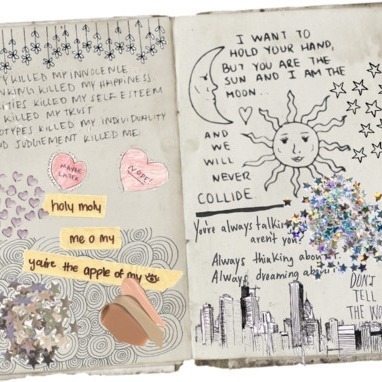 KILLED MY INNOCENCE
KILLED MY HAPPINESS.
KILLED MY SELF ESTEEM
KILLED MY TRUST
KILLED MY INDIVIDUALITY
JUDGEMENT KILLED ME.
MAYBE LATER
NOPE!
holy moly
me o my
you're the apple of my
I WANT TO
HOLD YOUR HAND,
BUT YOU ARE THE
SUN AND I AM THE
MOON..
AND
WE
WILL
NEVER
COLLIDE
You're always talking
aren't you?
Always thinking about
Always dreaming about
DON'T
TELL
THE